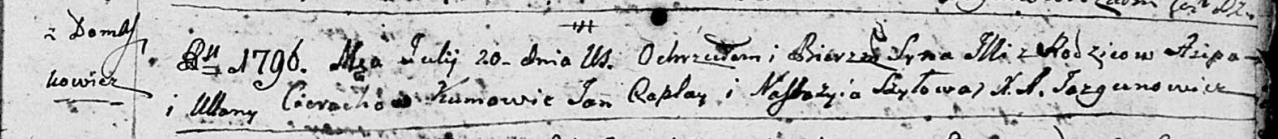 z Domasz,
kowicz
Ru 1796. Mca Julij 20. dnia Us. Ochrzciłem i Bierzm Syna Illi z Rodzicow Asipa
i Ullany Cierachow Kumowie Jan Kaplay i Nastazyia Szyłowa, X. A. Jazgunowicz